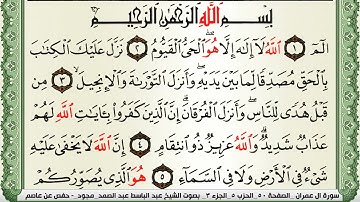 بِسْمِ اللَّهِ الرَّحْمَٰنِ الرَّحِيمِ
الٓمٓ ۝١ اللَّهُ لَآ إِلَٰهَ إِلَّا هُوَ الْحَيُّ الْقَيُّومُ ۝٢ نَزَّلَ عَلَيْكَ الْكِتَٰبَ
بِالْحَقِّ مُصَدِّقًا لِّمَا بَيْنَ يَدَيْهِ وَأَنزَلَ التَّوْرَىٰةَ وَالْإِنجِيلَ ۝٣ مِن
قَبْلُ هُدًى لِّلنَّاسِ وَأَنزَلَ الْفُرْقَانَ إِنَّ الَّذِينَ كَفَرُوا بِـَٔايَٰتِ اللَّهِ لَهُمْ
عَذَابٌ شَدِيدٌ وَاللَّهُ عَزِيزٌ ذُو انتِقَامٍ ۝٤ إِنَّ اللَّهَ لَا يَخْفَىٰ عَلَيْهِ
شَىْءٌ فِى الْأَرْضِ وَلَا فِى السَّمَآءِ ۝٥ هُوَ الَّذِى يُصَوِّرُكُمْ
سورة آل عمران - الصفحة ٥٠ - الحزب ٥ - الجزء ٣ - بصوت الشيخ عبد الباسط عبد الصمد - مجود - حفص عن عاصم